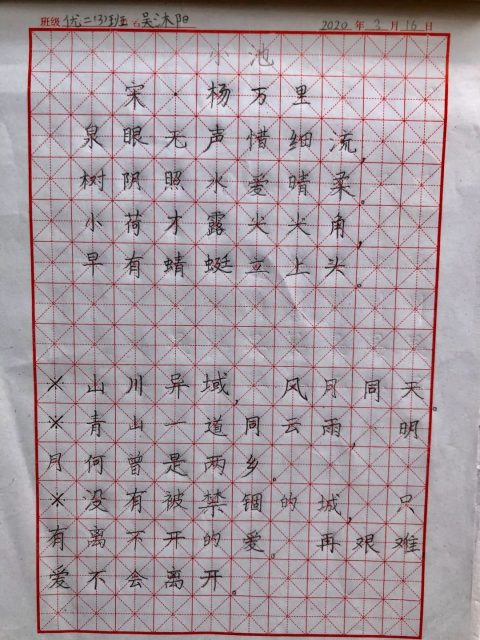 班级 优二(3)班 名 吴沐阳 2020 年 3 月 16 日
小池
宋·杨万里
泉眼无声惜细流,
树阴照水爱晴柔。
小荷才露尖尖角,
早有蜻蜓立上头。
※山川异域, 风月同天。
※青山一道同云雨, 明
月何曾是两乡。
※没有被禁锢的城, 只
有离不开的爱。 再艰难,
爱不会离开。